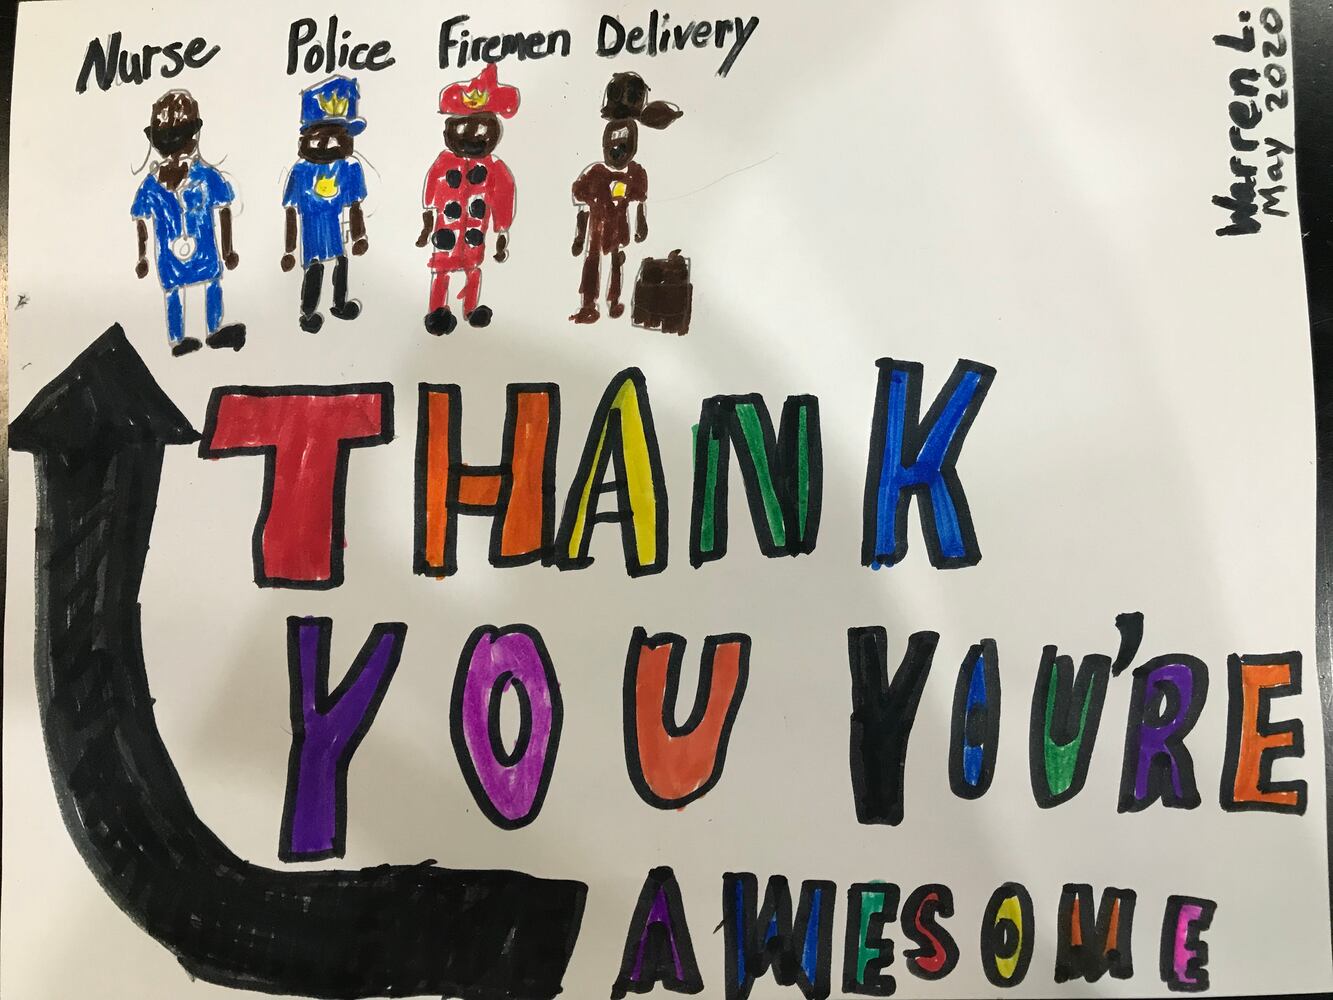 Nurse Police Firemen Delivery
Warren L.
May 2020
THANK
YOU YOU'RE
AWESOME